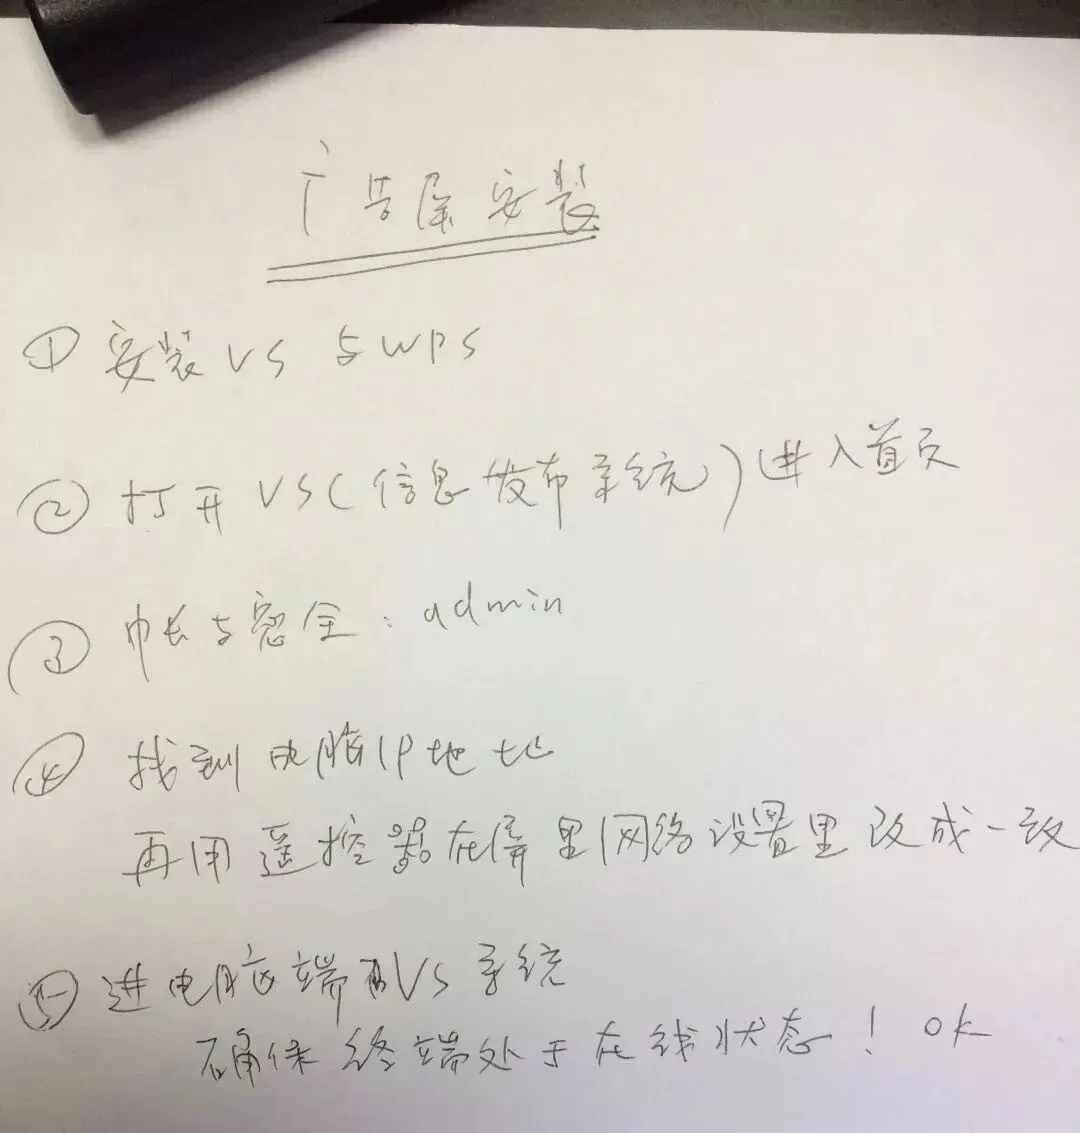 广告屏安装
① 安装VS与WPS
② 打开VS(信息发布系统)进入首页
③ 帐长与密全:admin
④ 找到电脑IP地址
再用遥控器在屏里网络设置里改成一致
⑤ 进电脑端VS系统
确保终端处于在线状态! OK